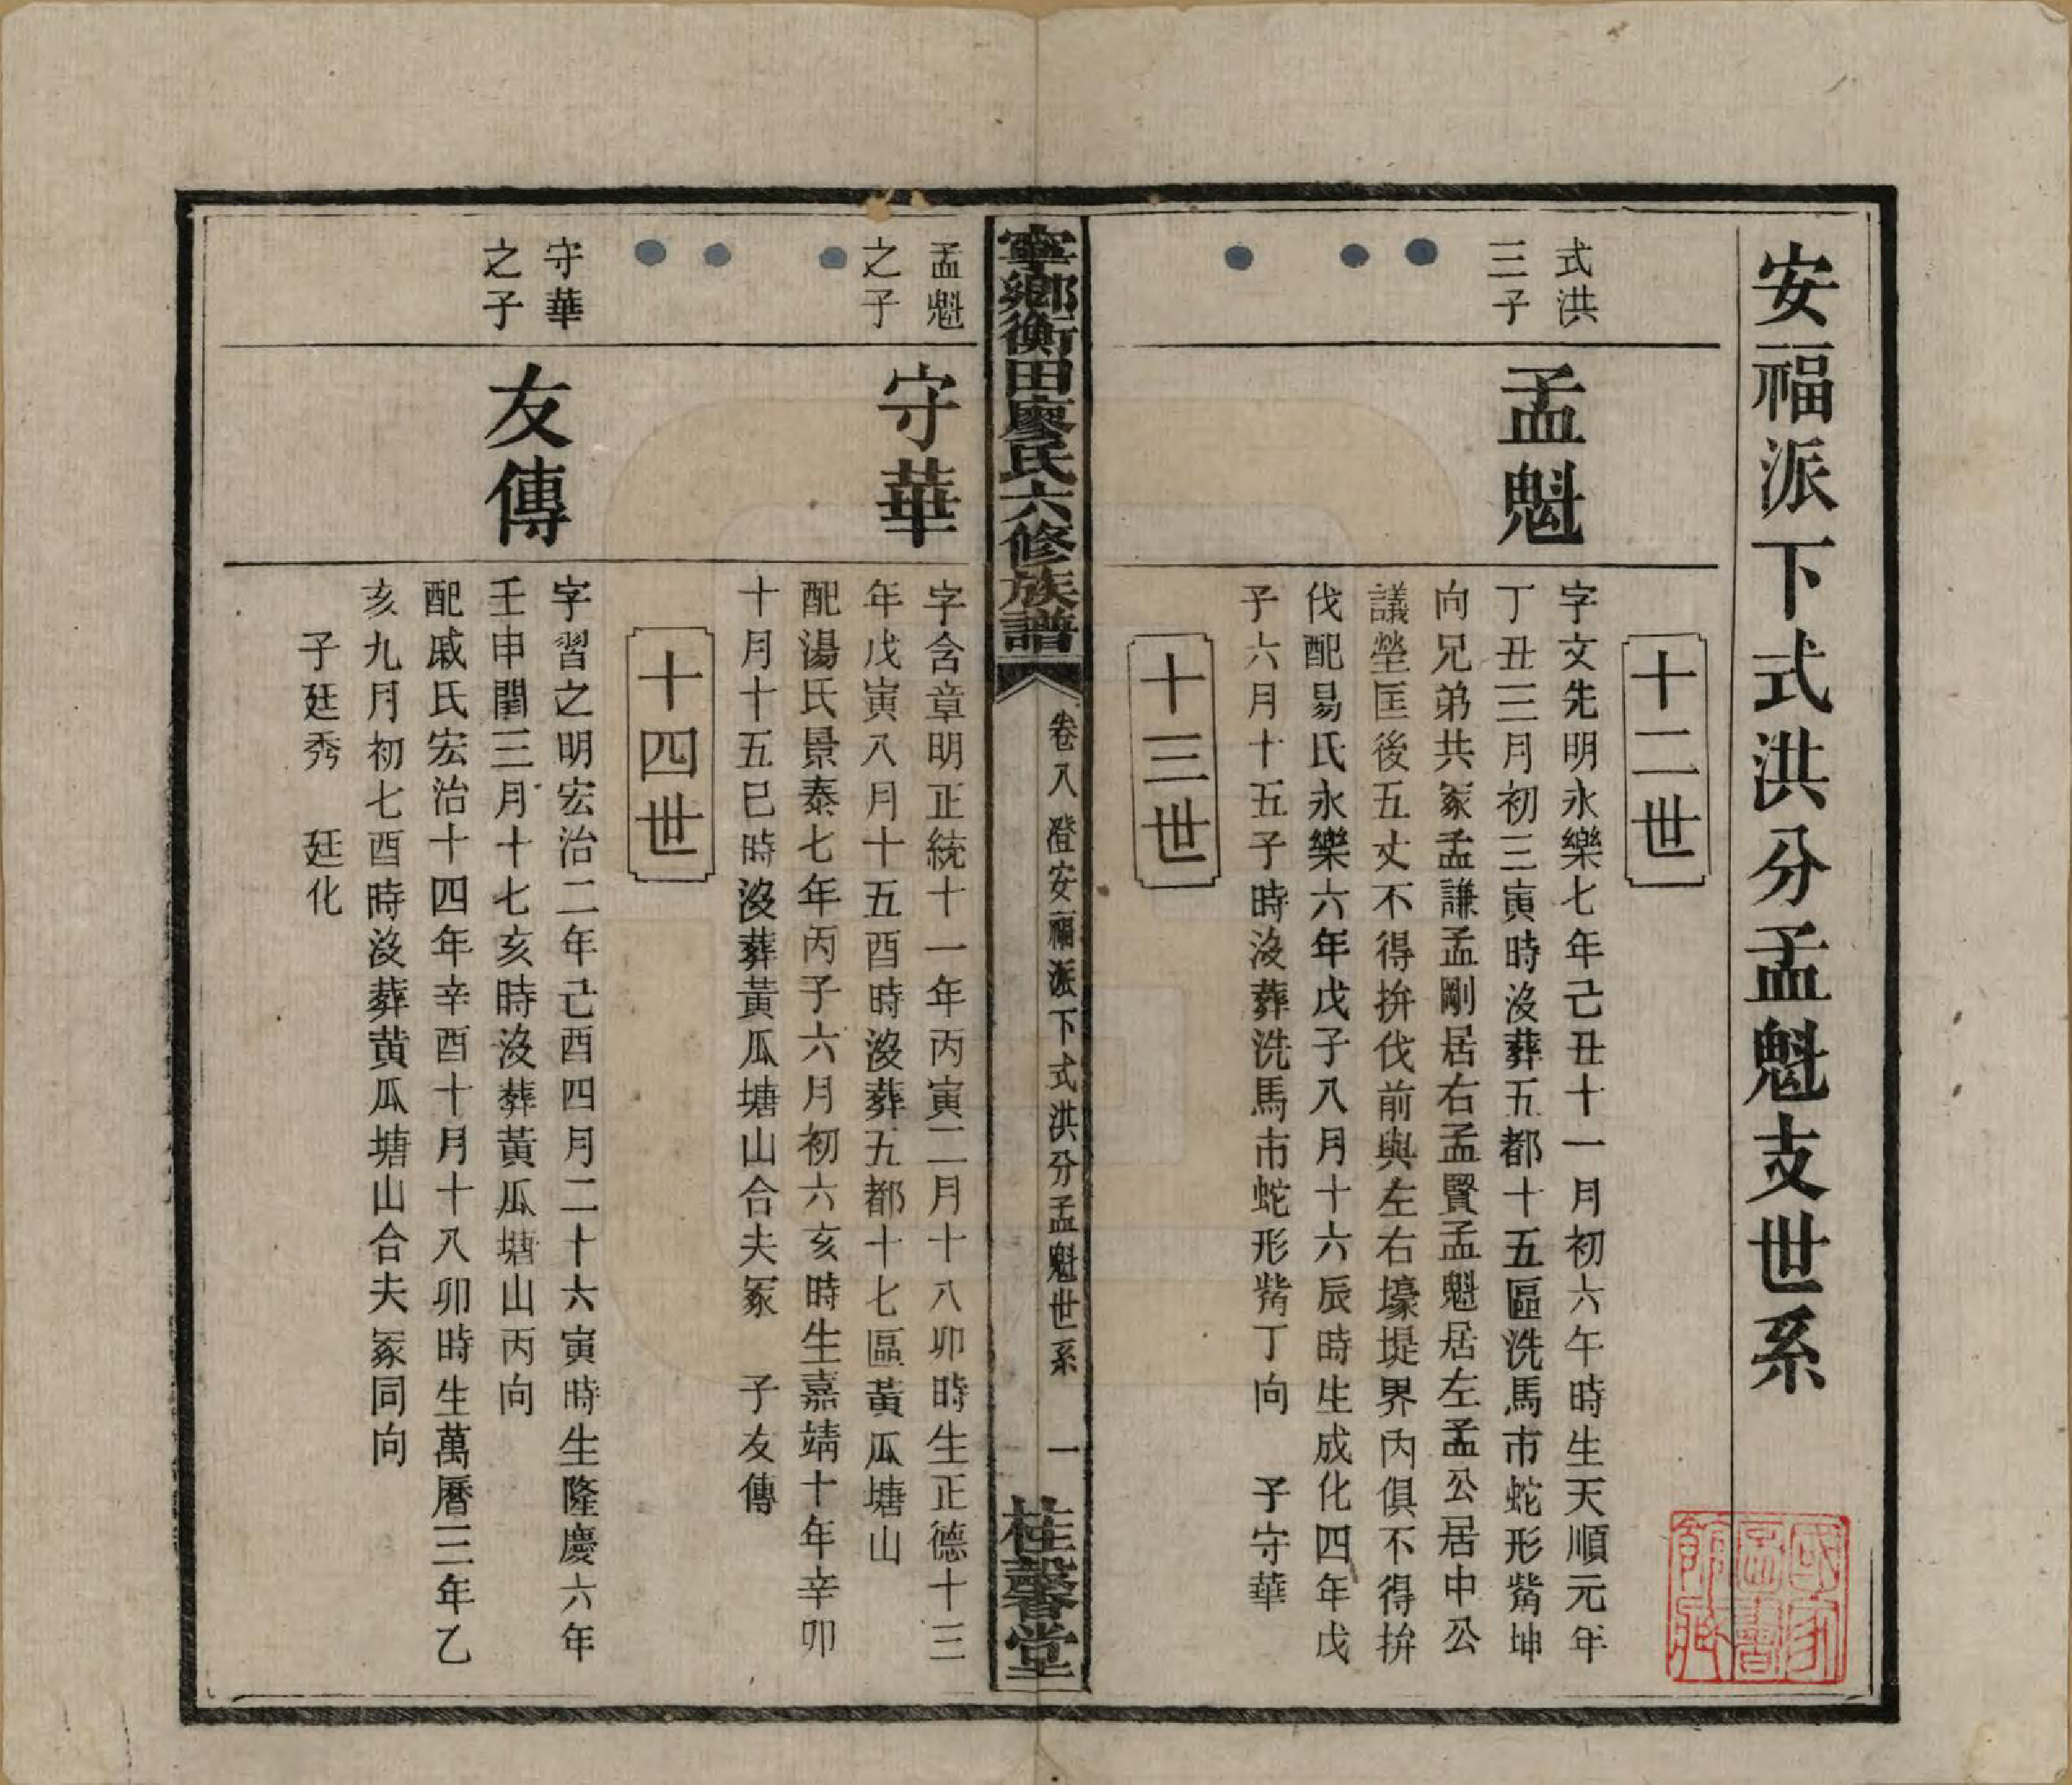 安福派下式洪分孟魁支世系
十二世
式洪
三子
孟魁
字文先明永樂七年己丑十一月初六午時生天順元年
丁丑三月初三寅時沒葬五都十五區洗馬市蛇形觜坤
向兄弟共冢孟謙孟剛居右孟賢孟魁居左孟公居中公
議塋匡後五丈不得拚伐前與左右壕堤界內俱不得拚
伐配易氏永樂六年戊子八月十六辰時生成化四年戊
子六月十五子時沒葬洗馬市蛇形觜丁向　子守華
十三世
寧鄉衡田廖氏六修族譜
卷八　澄安福派下式洪分孟魁世系
一
桂馨堂
孟魁
之子
守華
字含章明正統十一年丙寅二月十八卯時生正德十三
年戊寅八月十五酉時沒葬五都十七區黃瓜塘山
配湯氏景泰七年丙子六月初六亥時生嘉靖十年辛卯
十月十五巳時沒葬黃瓜塘山合夫冢　子友傳
十四世
守華
之子
友傳
字習之明宏治二年己酉四月二十六寅時生隆慶六年
壬申閏三月十七亥時沒葬黃瓜塘山丙向
配戚氏宏治十四年辛酉十月十八卯時生萬曆三年乙
亥九月初七酉時沒葬黃瓜塘山合夫冢同向
子廷秀　廷化
國家
圖書
館藏